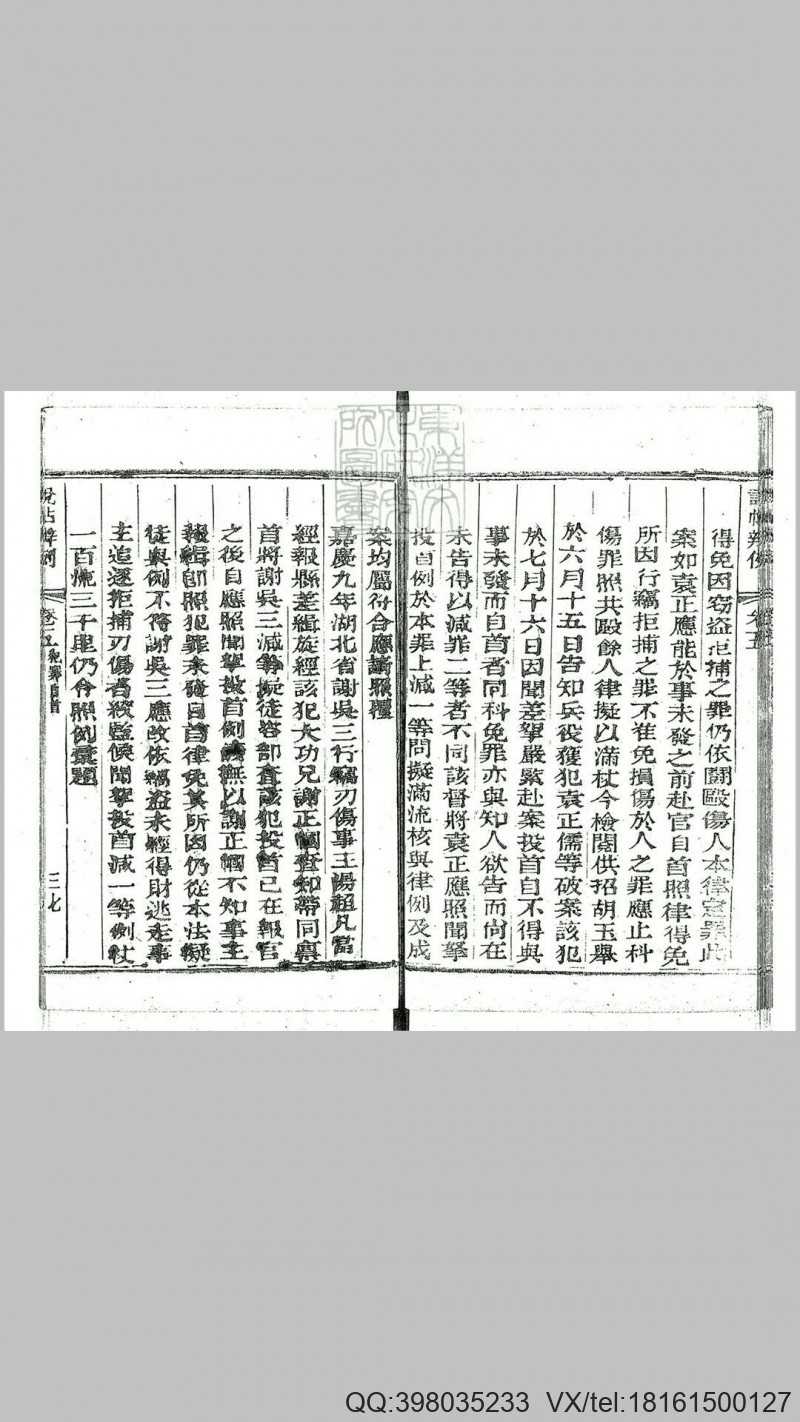 得免因窃盗拒捕之罪仍依鬭毆傷人本律定罪此
案如袁正應能於事未發之前赴官自首照律得免
所因行竊拒捕之罪不在免損傷於人之罪應止科
傷罪照共毆餘人律擬以滿杖今檢閱供招胡玉舉
於六月十五日告知兵役獲犯袁正儒等破案該犯
於七月十六日因聞差拏嚴緊赴案投首自不得與
事未發而自首者同科免罪亦與知人欲告而尚在
未告得以減罪二等者不同該督將袁正應照聞拏
投首例於本罪上減一等問擬滿流核與律例及成
案均屬符合應請照覆
嘉慶九年湖北省謝吳三行竊刃傷事主楊祖凡當
經報縣差緝旋經該犯大功兄謝正幗查知帶同稟
首將謝吳三減等擬徒咨部查該犯投首已在報官
之後自應照聞拏投首例無以謝正幗不知事主
報緝卽照犯罪未發自首律免其所因仍從本法擬
徒與例不符謝吳三應改依竊盗未經得財逃走事
主追逐拒捕刃傷者絞監候聞拏投首減一等例杖
一百流三千里仍令照例彙題
三七
QQ:398035233 VX/tel:18161500127